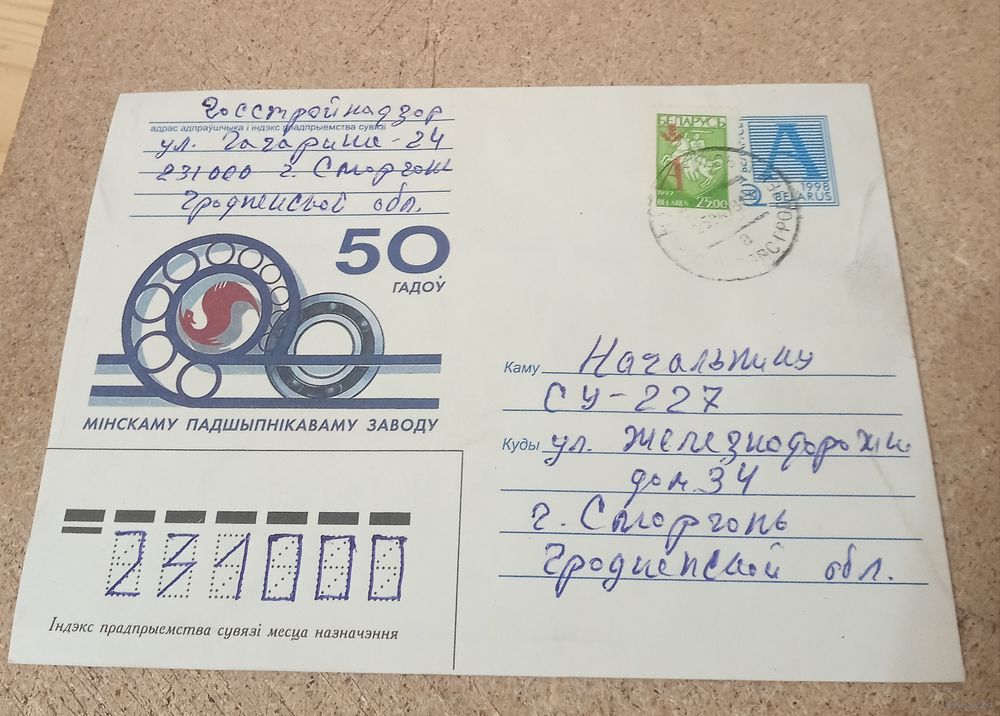 Госстройнадзор
адрас адпраўшчыка і індэкс прадпрыемства сувязі
ул. Гагарина-24
231000 г. Сморгонь
Гродненской обл.
БЕЛАРУСЬ
А
1992
BELARUS 25.00
А
1998
BELARUS
50
ГАДОЎ
МІНСКАМУ ПАДШЫПНІКАВАМУ ЗАВОДУ
Каму Начальнику
СУ-227
Куды ул. Железнодорожн.
дом 34
г. Сморгонь
Гродненской обл.
231000
Індэкс прадпрыемства сувязі месца назначэння